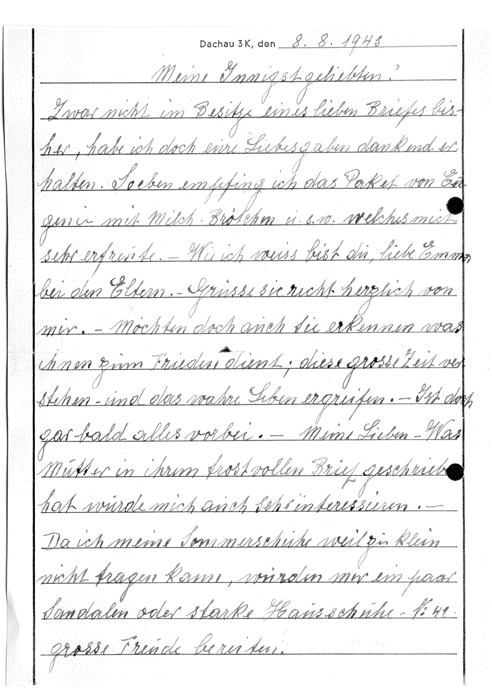 Dachau 3K, den 8. 8. 1943
Meine Innigstgeliebten!
Zwar nicht im Besitze eines lieben Briefes bis-
her, habe ich doch eure Liebesgaben dankend er
halten. Soeben empfing ich das Paket von Eu
genie mit Milch Brötchen u.s.w. welches mich
sehr erfreute. — Wie ich weiss bist du, liebe Emma,
bei den Eltern. — Grüsse sie recht herzlich von
mir. — Möchten doch auch sie erkennen was
ihnen zum Frieden dient; diese grosse Zeit ver
stehen — und das wahre Leben ergreifen. — Ist doch
gar bald alles vorbei. — Meine Lieben — Was
Mutter in ihrem trostvollen Brief geschrieb
hat würde mich auch sehr interessieren. —
Da ich meine Sommerschuhe weil zu klein
nicht tragen kann, würden mir ein paar
Sandalen oder starke Hausschuhe — N: 41.
grosse Freude bereiten.